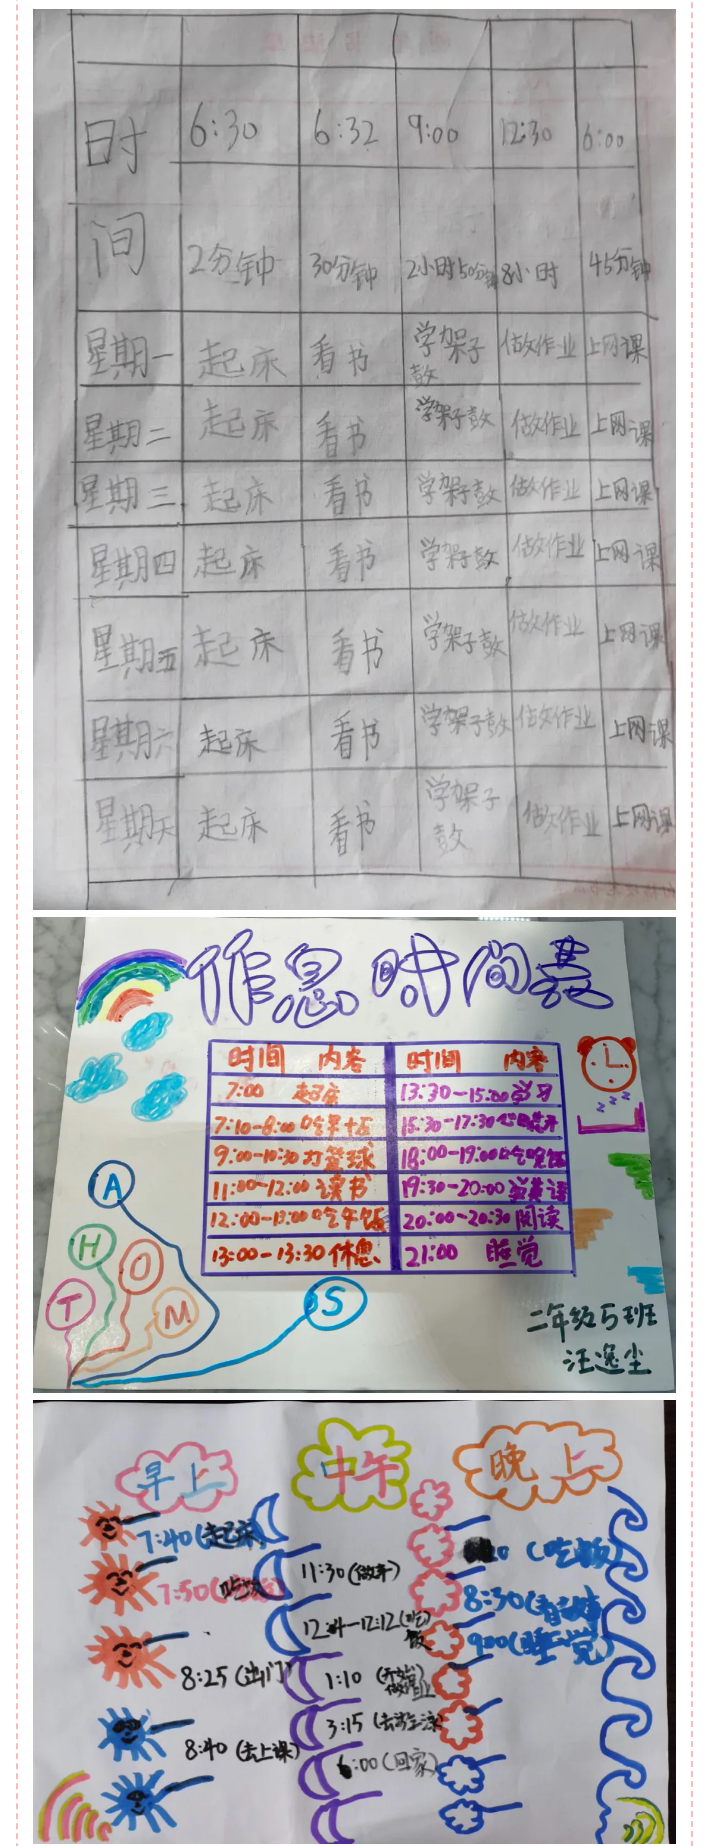 6:30 6:32 9:00 12:30 6:00
时间
2分钟 30分钟 2小时50分钟 8小时 45分钟
星期一 起床 看书 学架子鼓 做作业 上网课
星期二 起床 看书 学架子鼓 做作业 上网课
星期三 起床 看书 学架子鼓 做作业 上网课
星期四 起床 看书 学架子鼓 做作业 上网课
星期五 起床 看书 学架子鼓 做作业 上网课
星期六 起床 看书 学架子鼓 做作业 上网课
星期天 起床 看书 学架子鼓 做作业 上网课
作息时间表
时间 内容 时间 内容
7:00 起床 13:30-15:00 学习
7:10-8:00 吃早饭 15:30-17:30
9:00-10:30 打篮球 18:00-19:00 吃晚饭
11:00-12:00 读书 19:30-20:00 英语
12:00-13:00 吃午饭 20:00-20:30 阅读
13:00-13:30 休息 21:00 睡觉
z z z
A
H
O
T
M
S
二年级5班
汪逸尘
早上 中午 晚上
7:40(起床)
7:50(吃饭)
8:25(出门)
8:40(去上课)
11:30(做车)
12:04-12:12(吃饭)
1:10 (开始做作业)
3:15 (去游泳)
6:00(回家)
(吃饭)
8:30(看
9:00(睡觉)